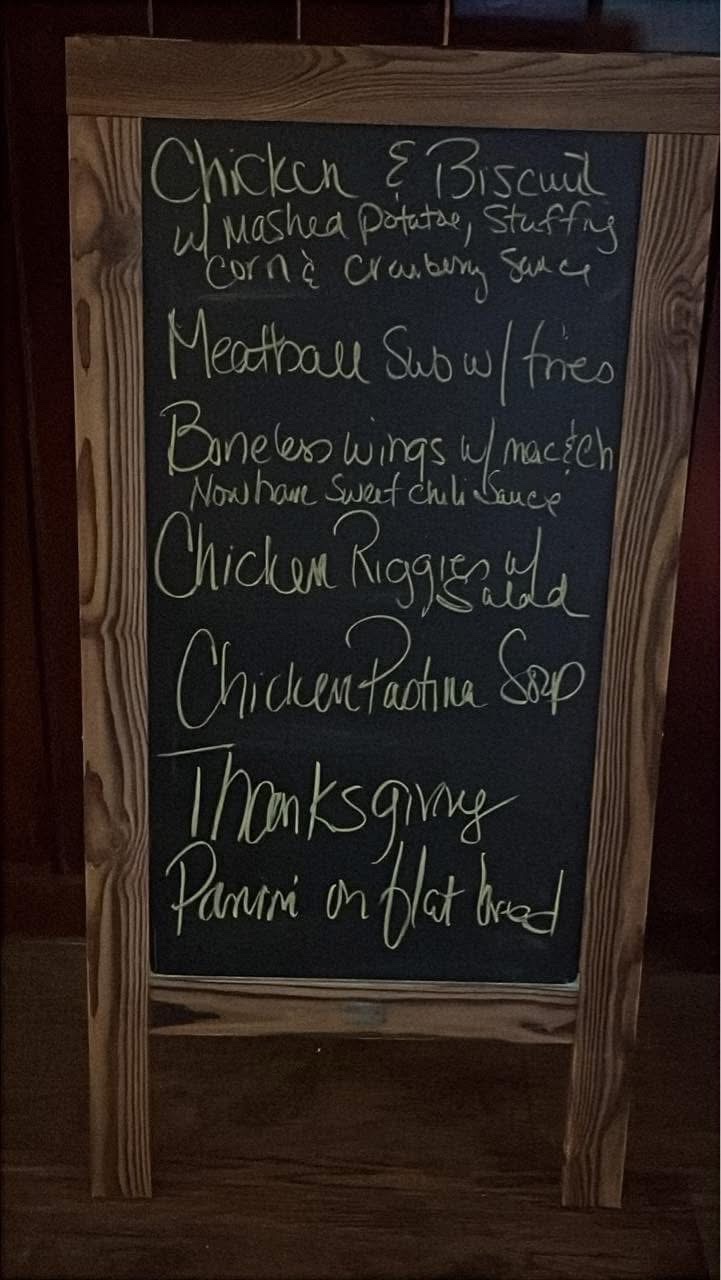 Chicken & Biscuit
w/ Mashed Potatoe, Stuffing
Corn & Cranberry Sauce
Meatball Sub w/ fries
Boneless wings w/ mac & ch
Now have Sweet Chili Sauce
Chicken Riggies w/
Salad
Chicken Pastina Soup
Thanksgiving
Panini on flat bread